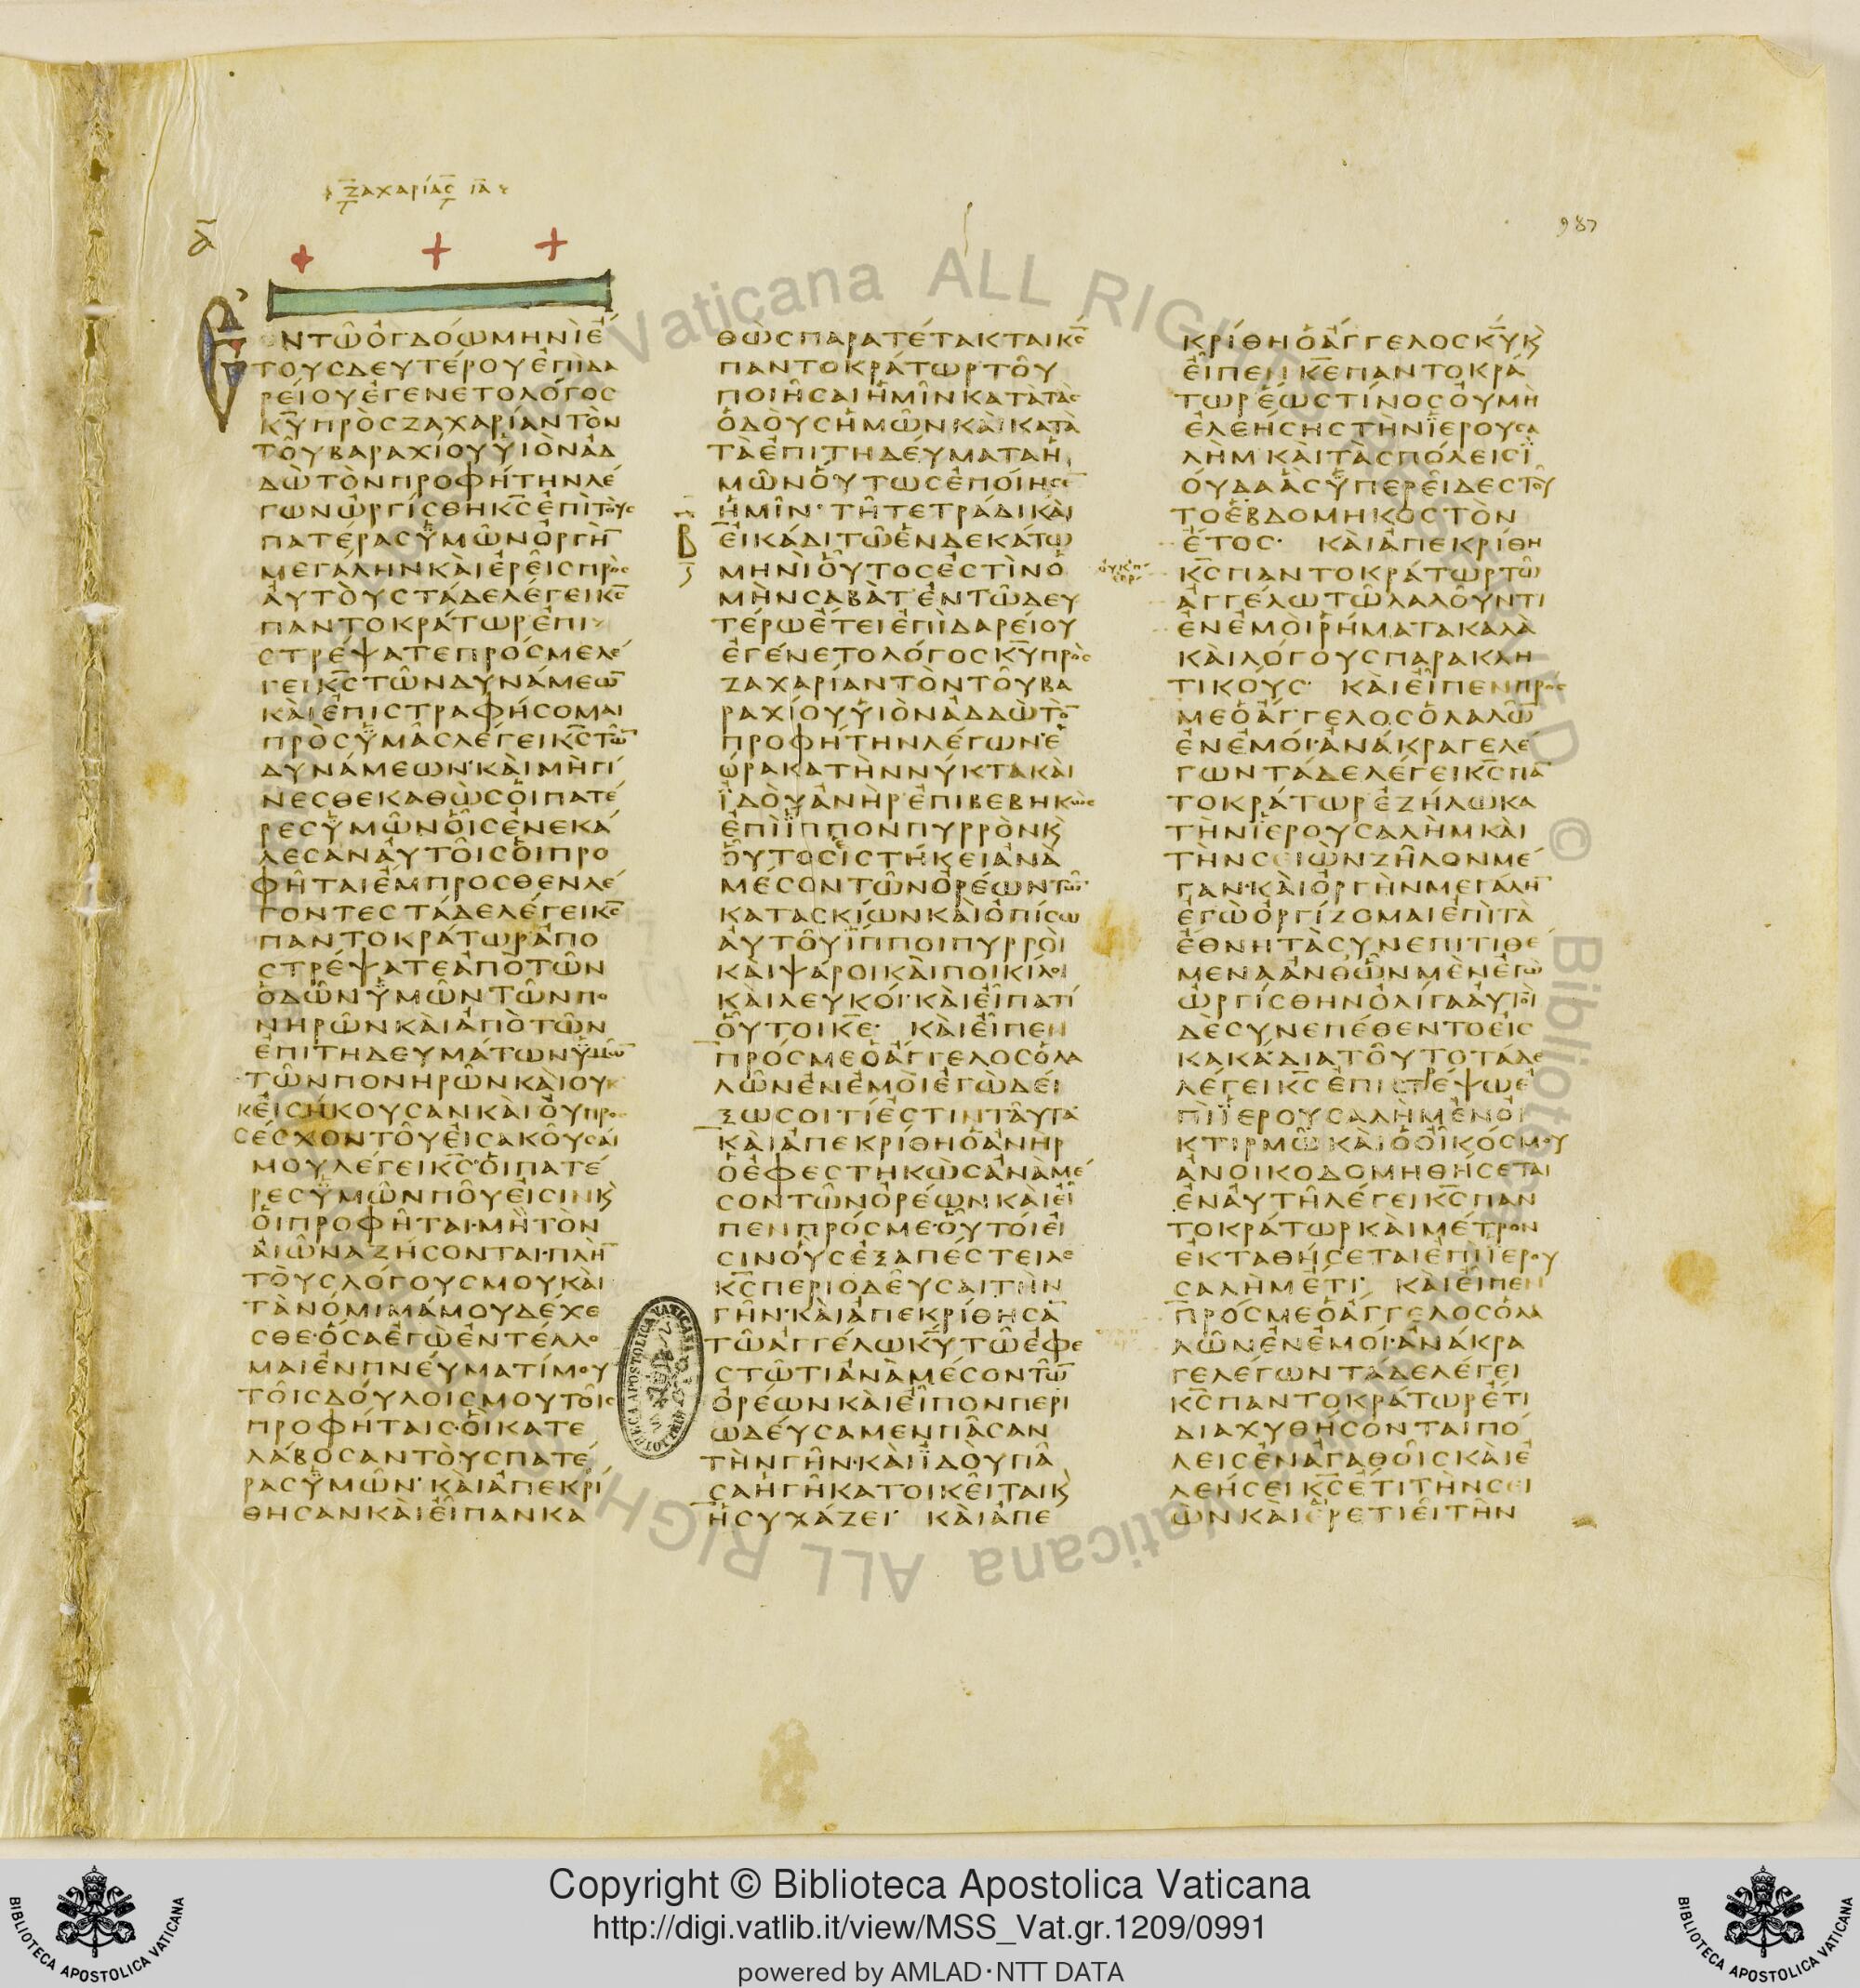 ζαχαρίας ια
987
α
ΕΝΤΩΟΓΔΟΩΜΗΝΙΕ
ΤΟΥΣΔΕΥΤΕΡΟΥΕΠΙΔΑ
ΡΕΙΟΥΕΓΕΝΕΤΟΛΟΓΟΣ
Κ̅Υ̅ΠΡΟΣΖΑΧΑΡΙΑΝΤΟΝ
ΤΟΥΒΑΡΑΧΙΟΥΥΙΟΝΑΔ
ΔΩΤΟΝΠΡΟΦΗΤΗΝΛΕ
ΓΩΝΩΡΓΙΣΘΗΚ̅Σ̅ΕΠΙΤΟΥΣ
ΠΑΤΕΡΑΣΥΜΩΝΟΡΓΗ̅
ΜΕΓΑΛΗΝΚΑΙΕΡΕΙΣΠΡΟΣ
ΑΥΤΟΥΣΤΑΔΕΛΕΓΕΙΚ̅Σ̅
ΠΑΝΤΟΚΡΑΤΩΡΕΠΙ
ΣΤΡΕΨΑΤΕΠΡΟΣΜΕΛΕ
ΓΕΙΚ̅Σ̅ΤΩΝΔΥΝΑΜΕΩ̅
ΚΑΙΕΠΙΣΤΡΑΦΗΣΟΜΑΙ
ΠΡΟΣΥΜΑΣΛΕΓΕΙΚ̅Σ̅ΤΩ̅
ΔΥΝΑΜΕΩΝ·ΚΑΙΜΗΓΙ
ΝΕΣΘΕΚΑΘΩΣΟΙΠΑΤΕ
ΡΕΣΥΜΩΝΟΙΣΕΝΕΚΑ
ΛΕΣΑΝΑΥΤΟΙΣΟΙΠΡΟ
ΦΗΤΑΙΕΜΠΡΟΣΘΕΝΛΕ
ΓΟΝΤΕΣΤΑΔΕΛΕΓΕΙΚ̅Σ̅
ΠΑΝΤΟΚΡΑΤΩΡΑΠΟ
ΣΤΡΕΨΑΤΕΑΠΟΤΩΝ
ΟΔΩΝΥΜΩΝΤΩΝΠΟ
ΝΗΡΩΝΚΑΙΑΠΟΤΩΝ
ΕΠΙΤΗΔΕΥΜΑΤΩΝΥΜΩ̅
ΤΩΝΠΟΝΗΡΩΝΚΑΙΟΥΚ
ΕΙΣΗΚΟΥΣΑΝΚΑΙΟΥΠΡΟ
ΣΕΣΧΟΝΤΟΥΕΙΣΑΚΟΥΣΑΙ
ΜΟΥΛΕΓΕΙΚ̅Σ̅·ΟΙΠΑΤΕ
ΡΕΣΥΜΩΝΠΟΥΕΙΣΙΝΚ̀
ΟΙΠΡΟΦΗΤΑΙ·ΜΗΤΟΝ
ΑΙΩΝΑΖΗΣΟΝΤΑΙ·ΠΛΗ̅
ΤΟΥΣΛΟΓΟΥΣΜΟΥΚΑΙ
ΤΑΝΟΜΙΜΑΜΟΥΔΕΧΕ
ΣΘΕ·ΟΣΑΕΓΩΕΝΤΕΛΛΟ
ΜΑΙΕΝΠΝΕΥΜΑΤΙΜΟΥ
ΤΟΙΣΔΟΥΛΟΙΣΜΟΥΤΟΙΣ
ΠΡΟΦΗΤΑΙΣ·ΟΙΚΑΤΕ
ΛΑΒΟΣΑΝΤΟΥΣΠΑΤΕ
ΡΑΣΥΜΩΝ·ΚΑΙΑΠΕΚΡΙ
ΘΗΣΑΝΚΑΙΕΙΠΑΝΚΑ
ΘΩΣΠΑΡΑΤΕΤΑΚΤΑΙΚ̅Σ̅
ΠΑΝΤΟΚΡΑΤΩΡΤΟΥ
ΠΟΙΗΣΑΙΗΜΙΝΚΑΤΑΤΑΣ
ΟΔΟΥΣΗΜΩΝΚΑΙΚΑΤΑ
ΤΑΕΠΙΤΗΔΕΥΜΑΤΑΗ
ΜΩΝΟΥΤΩΣΕΠΟΙΗΣΕ̅
ΗΜΙΝ·ΤΗΤΕΤΡΑΔΙΚΑΙ
Β
ΕΙΚΑΔΙΤΩΕΝΔΕΚΑΤΩ
ΜΗΝΙΟΥΤΟΣΕΣΤΙΝΟ
ΜΗΝΣΑΒΑΤΕΝΤΩΔΕΥ
ΤΕΡΩΕΤΕΙΕΠΙΔΑΡΕΙΟΥ
ΕΓΕΝΕΤΟΛΟΓΟΣΚ̅Υ̅ΠΡΟΣ
ΖΑΧΑΡΙΑΝΤΟΝΤΟΥΒΑ
ΡΑΧΙΟΥΥΙΟΝΑΔΔΩΤΟ̅
ΠΡΟΦΗΤΗΝΛΕΓΩΝ·Ε
ΩΡΑΚΑΤΗΝΝΥΚΤΑΚΑΙ
ΙΔΟΥΑΝΗΡΕΠΙΒΕΒΗΚΩΣ
ΕΠΙΙΠΠΟΝΠΥΡΡΟΝΚ̀
ΟΥΤΟΣΙΣΤΗΚΕΙΑΝΑ
ΜΕΣΟΝΤΩΝΟΡΕΩΝΤΩ̅
ΚΑΤΑΣΚΙΩΝΚΑΙΟΠΙΣΩ
ΑΥΤΟΥΙΠΠΟΙΠΥΡΡΟΙ
ΚΑΙΨΑΡΟΙΚΑΙΠΟΙΚΙΛΟΙ
ΚΑΙΛΕΥΚΟΙ·ΚΑΙΕΙΠΑΤΙ
ΟΥΤΟΙΚ̅Ε̅· ΚΑΙΕΙΠΕΝ
ΠΡΟΣΜΕΟΑΓΓΕΛΟΣΟΛΑ
ΛΩΝΕΝΕΜΟΙΕΓΩΔΕΙ
ΞΩΣΟΙ·ΤΙΕΣΤΙΝΤΑΥΤΑ
ΚΑΙΑΠΕΚΡΙΘΗΟΑΝΗΡ
ΟΕΦΕΣΤΗΚΩΣΑΝΑΜΕ
ΣΟΝΤΩΝΟΡΕΩΝ·ΚΑΙΕΙ
ΠΕΝΠΡΟΣΜΕ·ΟΥΤΟΙΕΙ
ΣΙΝΟΥΣΕΞΑΠΕΣΤΕΙΛΕ
Κ̅Σ̅ΠΕΡΙΟΔΕΥΣΑΙΤΗΝ
ΓΗΝ·ΚΑΙΑΠΕΚΡΙΘΗΣΑ̅
ΤΩΑΓΓΕΛΩΚ̅Υ̅ΤΩΕΦΕ
ΣΤΩΤΙΑΝΑΜΕΣΟΝΤΩ̅
ΟΡΕΩΝΚΑΙΕΙΠΟΝΠΕΡΙ
ΩΔΕΥΣΑΜΕΝΠΑΣΑΝ
ΤΗΝΓΗΝ·ΚΑΙΙΔΟΥΠΑ
ΣΑΗΓΗΚΑΤΟΙΚΕΙΤΑΙΚ̀
ΗΣΥΧΑΖΕΙ· ΚΑΙΑΠΕ
ΚΡΙΘΗΟΑΓΓΕΛΟΣΚ̅Υ̅Κ̀
ΕΙΠΕΝΚ̅Ε̅ΠΑΝΤΟΚΡΑ
ΤΩΡΕΩΣΤΙΝΟΣΟΥΜΗ
ΕΛΕΗΣΗΣΤΗΝΙΕΡΟΥΣΑ
ΛΗΜΚΑΙΤΑΣΠΟΛΕΙΣΙ
ΟΥΔΑΑΣΥΠΕΡΕΙΔΕΣΤΟΥ
ΤΟΕΒΔΟΜΗΚΟΣΤΟΝ
ΕΤΟΣ· ΚΑΙΑΠΕΚΡΙΘΗ
Κ̅Σ̅ΠΑΝΤΟΚΡΑΤΩΡΤΩ
ΑΓΓΕΛΩΤΩΛΑΛΟΥΝΤΙ
ΕΝΕΜΟΙΡΗΜΑΤΑΚΑΛΑ
ΚΑΙΛΟΓΟΥΣΠΑΡΑΚΛΗ
ΤΙΚΟΥΣ· ΚΑΙΕΙΠΕΝΠΡΟΣ
ΜΕΟΑΓΓΕΛΟΣΟΛΑΛΩ̅
ΕΝΕΜΟΙ·ΑΝΑΚΡΑΓΕΛΕ
ΓΩΝΤΑΔΕΛΕΓΕΙΚ̅Σ̅ΠΑ̅
ΤΟΚΡΑΤΩΡΕΖΗΛΩΚΑ
ΤΗΝΙΕΡΟΥΣΑΛΗΜΚΑΙ
ΤΗΝΣΕΙΩΝΖΗΛΟΝΜΕ
ΓΑΝ·ΚΑΙΟΡΓΗΝΜΕΓΑΛΗ̅
ΕΓΩΟΡΓΙΖΟΜΑΙΕΠΙΤΑ
ΕΘΝΗΤΑΣΥΝΕΠΙΤΙΘΕ
ΜΕΝΑΑΝΘΩΝΜΕΝΕΓΩ
ΩΡΓΙΣΘΗΝΟΛΙΓΑΑΥΤΟΙ
ΔΕΣΥΝΕΠΕΘΕΝΤΟΕΙΣ
ΚΑΚΑ·ΔΙΑΤΟΥΤΟΤΑΔΕ
ΛΕΓΕΙΚ̅Σ̅ΕΠΙΣΤΡΕΨΩΕ
ΠΙΙΕΡΟΥΣΑΛΗΜΕΝΟΙ
ΚΤΙΡΜΩΚΑΙΟΟΙΚΟΣΜΟΥ
ΑΝΟΙΚΟΔΟΜΗΘΗΣΕΤΑΙ
ΕΝΑΥΤΗΛΕΓΕΙΚ̅Σ̅ΠΑΝ
ΤΟΚΡΑΤΩΡΚΑΙΜΕΤΡΟΝ
ΕΚΤΑΘΗΣΕΤΑΙΕΠΙΙΕΡΟΥ
ΣΑΛΗΜΕΤΙ· ΚΑΙΕΙΠΕΝ
ΠΡΟΣΜΕΟΑΓΓΕΛΟΣΟΛΑ
ΛΩΝΕΝΕΜΟΙ·ΑΝΑΚΡΑ
ΓΕΛΕΓΩΝΤΑΔΕΛΕΓΕΙ
Κ̅Σ̅ΠΑΝΤΟΚΡΑΤΩΡΕΤΙ
ΔΙΑΧΥΘΗΣΟΝΤΑΙΠΟ
ΛΕΙΣΕΝΑΓΑΘΟΙΣΚΑΙΕ
ΛΕΗΣΕΙΚ̅Σ̅ΕΤΙΤΗΝΣΕΙ
ΩΝΚΑΙΕΡΕΤΙΕΙΤΗΝ
Vaticana ALL RIG
© Bibliote
BIBLIOTECA APOSTOLICA VATICANA
Copyright © Biblioteca Apostolica Vaticana
http://digi.vatlib.it/view/MSS_Vat.gr.1209/0991
powered by AMLAD·NTT DATA
BIBLIOTECA APOSTOLICA VATICANA
BIBLIOTECA APOSTOLICA VATICANA